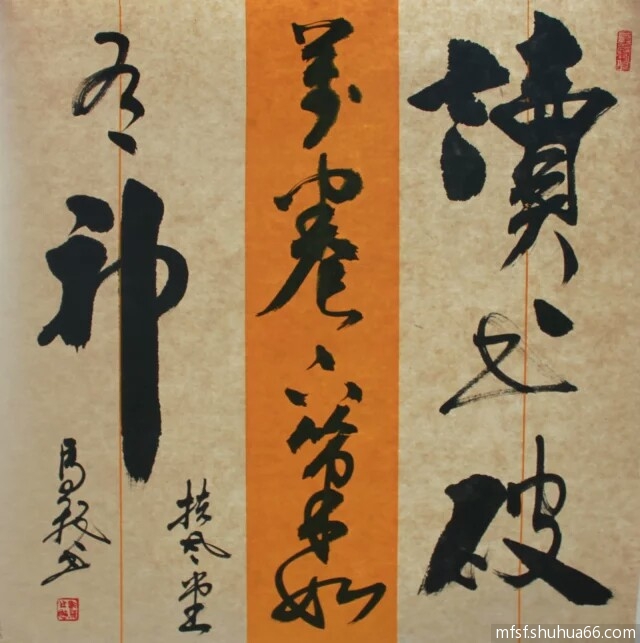 讀书破
萬卷下筆如
有神
扶风堂
馬 书
mfsf.shuhua66.com